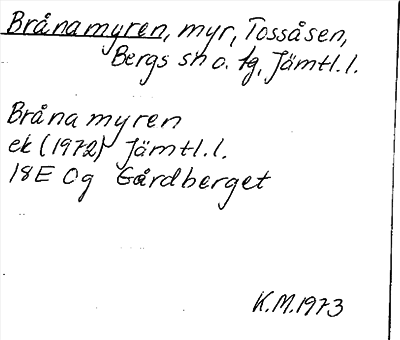 Brånamyren, myr, Tossåsen,
Bergs sn o. tg, Jämtl.l.
Brånamyren
ek (1972) Jämtl.l.
18E 0g Gårdberget
K.M.1973